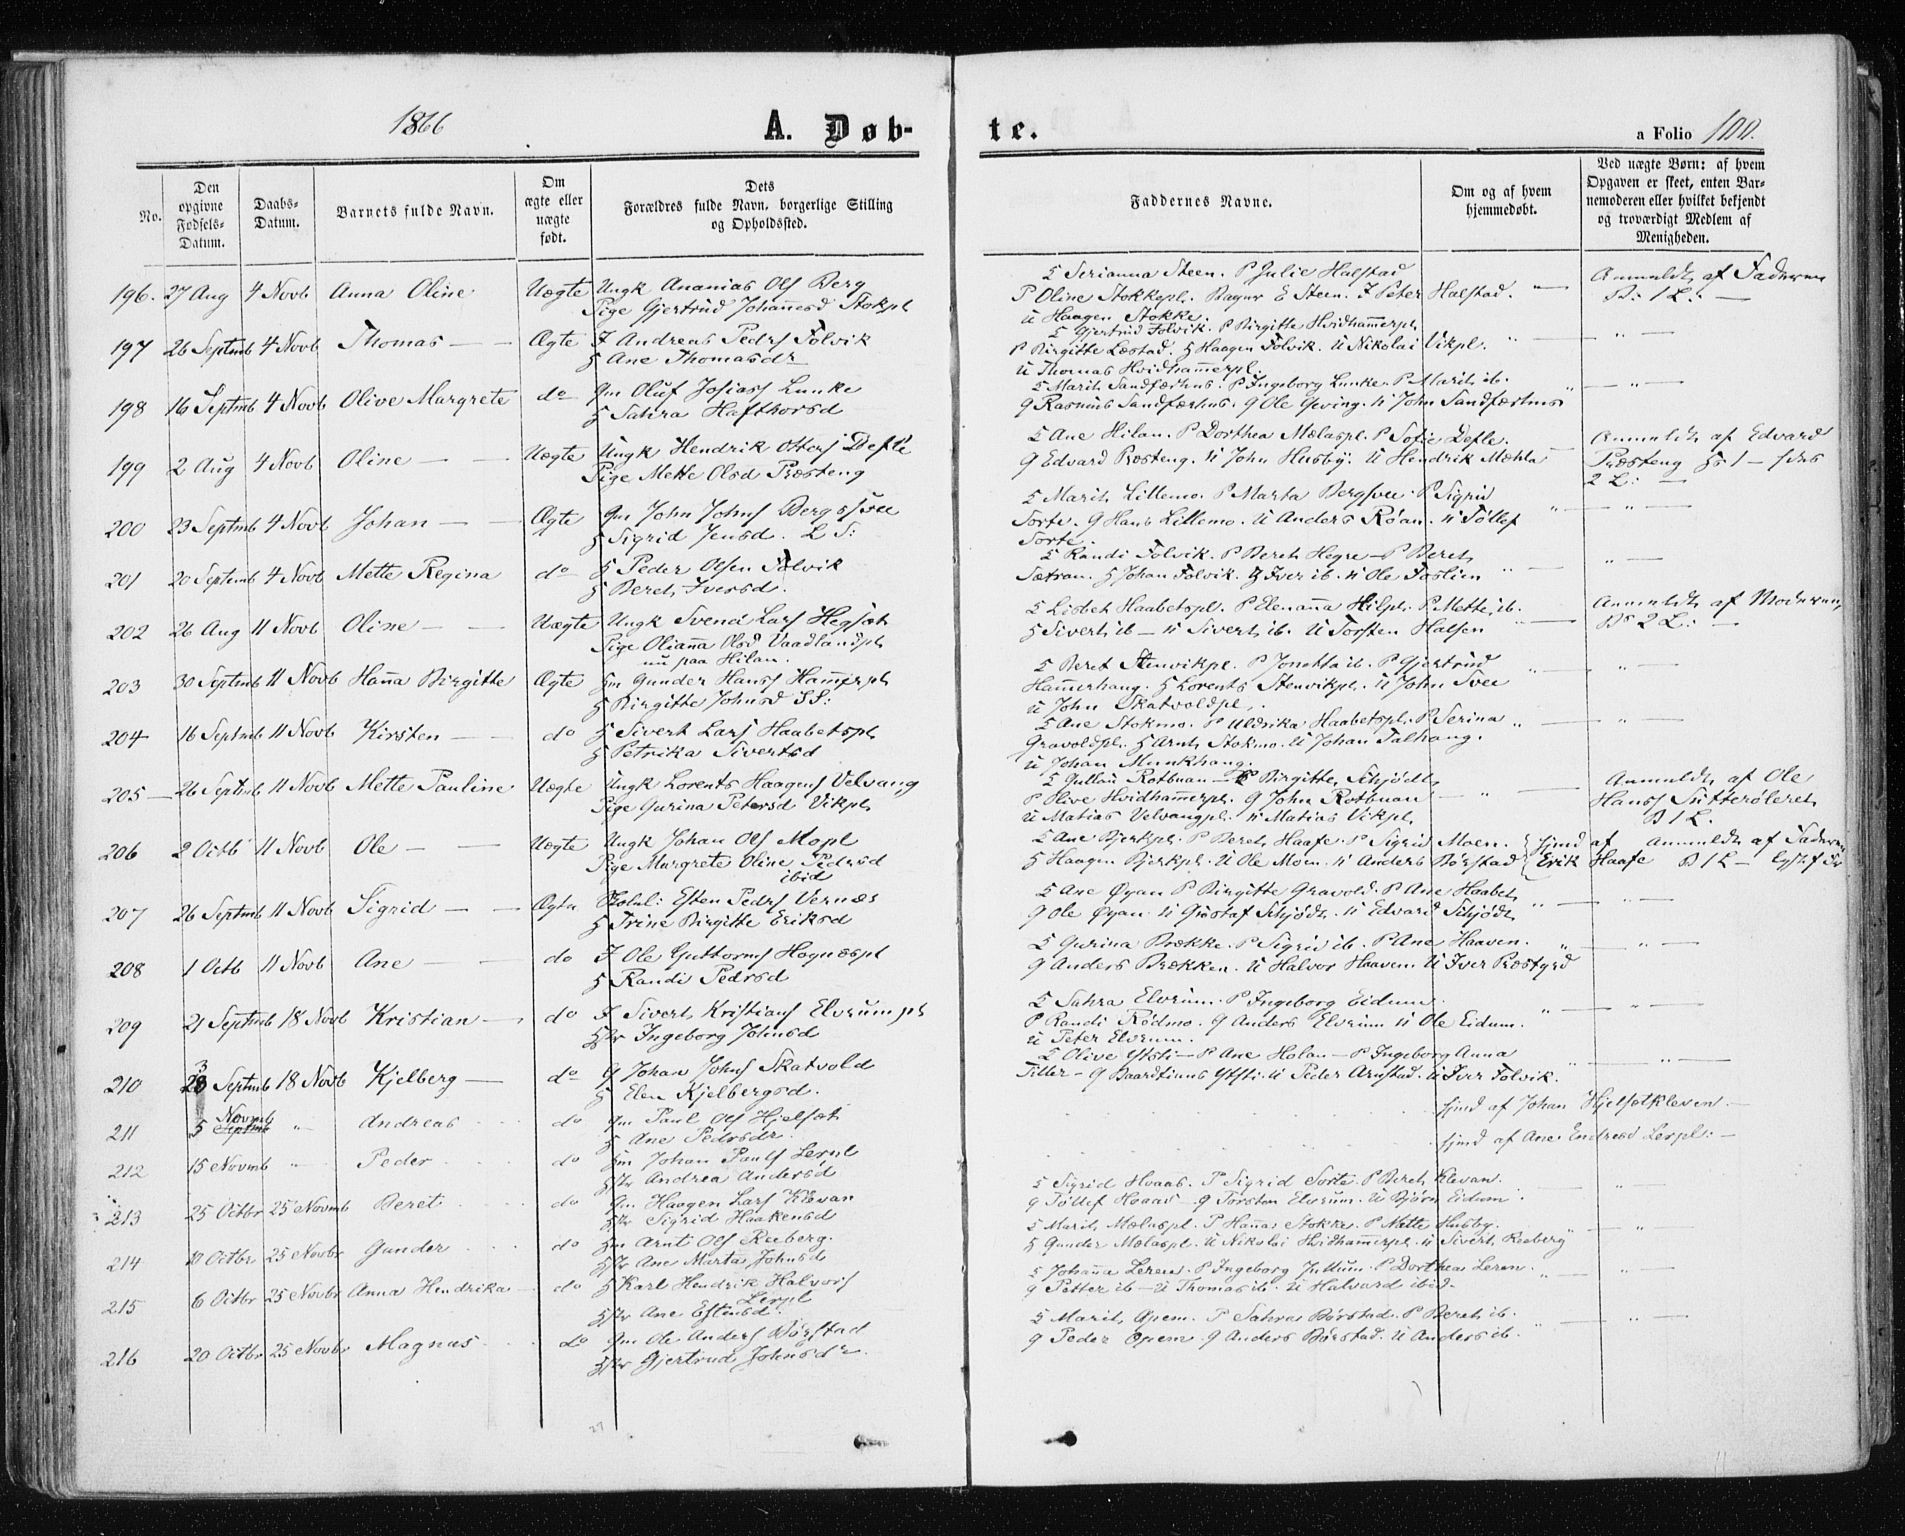 1866
A. Døb-
te.
a Folio 100.
No.
Den opgivne Fødsels-Datum.
Daabs-Datum.
Barnets fulde Navn.
Om ægte eller uægte født.
Dets Forældres fulde Navn, borgerlige Stilling og Opholdssted.
Faddernes Navne.
Om og af hvem hjemmedøbt.
Ved uægte Børn: af hvem Opgaven er skeet, enten Barnemoderen eller hvilket bekjendt og troværdigt Medlem af Menigheden.
196. 27 Aug 4 Novb Anna Oline Uægte Ungk Ananias Ols Berg
Pige Gjertrud Johannesd Stokpl
S Serianna Steen. P Julie Halstad
P Oline Stokkepl. Bagnr E Steen. F Peter Halstad. "
U Haagen Stokke.
Anmeldt af Faderen
B: 1 L: —
197 26 Septmb 4 Novb Thomas — — Ægte F Andreas Peders Folvik
H Ane Thomasdr
S Gjertrud Folvik. P Birgitte Hvidhammerpl
P Birgitte Læstad. H Haagen Folvik. U Nikolai Vikpl. "
U Thomas Hvidhammerpl.
198 16 Septmb 4 Novb Olive Margrete do Gm Oluf Josias Lunke
H Sahra Hafthorsd
S Marit Sandfærhus. P Ingeborg Lunke. P Marit ib.
G Rasmus Sandfærhus. G Ole Geving. U John Sandfærhus
199 2 Aug 4 Novb Oline — — Uægte Ungk Hendrik Otters Defle
Pige Mette Olsd Præsteng
S Ane Hilan. P Dorthea Mælaspl. P Sofie Defle.
G Edvard Præsteng. U John Husby. U Hendrik Mæhla
Anmeldt af Edvard
Præsteng
2 L: —
200 23 Septmb 4 Novb Johan — — Ægte Gm John Johns Bergssvee
H Sigrid Jensd. L S:
S Marit Lillemo. P Marta Bergsvee. P Sigrid
Sorte. G Hans Lillemo. U Anders Röan. U Töllef
Sorte.
201 20 Septemb 4 Novb Mette Regina do H Peder Olsen Folvik
H Beret Iversd.
S Randi Folvik. P Beret Hegre — P Beret
Sætran. H Johan Folvik. H Iver ib. U Ole Foslien
202 26 Aug 11 Novb Oline — — Uægte Ungk Svend Lars Hegset
Pige Olianna Olsd Vaadlandspl
nu paa Hilan.
S Lisbet Haabetspl. P Elenanna Hilpl. P Mette ib.
H Sivert ib — U Sivert ib. U Torsten Halsen
Anmeldt af Moderen,
B: 2 L: —
203 30 Septmb 11 Novb Hanna Birgitte Ægte Hm Gunder Hans Hammerpl
H Birgitte Johnsd SS:
S Beret Stenvikpl. P Jonetta ib. P Gjertrud
Hammerhaug. H Lorents Stenvikpl. U John Svee
U John Skatvoldpl.
204 16 Septmb 11 Novb Kirsten — — do H Sivert Lars Haabetspl
H Petrika Sivertsd
S Ane Stokmo. P Uldrika Haabetspl. P Serina
Gravoldpl. H Arnt Stokmo. U Johan Salhaug.
U Johan Munkhaug.
205 — 26 Septmb 11 Novb Mette Pauline Uægte Ungk Lorents Haagens Velvang
Pige Gurina Petersd Vikpl
S Gullau Rotbuan — P Birgitte Schjödt
P Olive Hvidhammerpl. G John Rotbuan
U Matias Velvangpl. U Matias Vikpl
Anmeldt af Ole
Hans Sutterøleret
B 1 L.
206 2 Octb 11 Novb Ole — — Uægte Ungk Johan Ols Mopl
Pige Margrete Oline Pedersd
ibid
S Ane Bjerkpl. P Beret Haafe. P Sigrid Moen. Hjmd af
H Haagen Bjerkpl. U Ole Moen. U Anders Børstad Erik Haafe
Anmeldt af Faderen
B 1 L —
207 26 Septmb 11 Novb Sigrid — — Ægte Skolul: Esten Peders Vernæs
H Trine Birgitte Eriksd
S Ane Øyan P Birgitte Gravold. P Ane Haabet
G Ole Øyan. U Gustaf Schjödt. U Edvard Schjödt
208 1 Octb 11 Novb Ane — — do F Ole Guttorms Hognæspl
H Randi Pedersd
S Gurina Brække. P Sigrid ib. P Ane Haaven.
G Anders Brækken. U Halvor Haaven. U Iver Præstgrd
209 21 Septmb 18 Novb Kristian — do F Sivert Kristians Elvrumpl
Hstr Ingeborg Johnsd
S Sahra Elvrum. P Ingeborg Eidum.
P Randi Rödmo. G Anders Elvrum U Ole Eidum.
U Peter Elvrum.
210 23 Septmb 18 Novb Kjelberg — do G Johan Johns Skatvold
H Elen Kjelbergsd.
S Olive Ytsti — P Ane Holan — P Ingeborg Anna
Titter — G Baardtinus Ytsti. U Peder Arnstad. U Iver Folvik.
211 5 Novmb Septmb " Andreas do Gm Paul Ols Hjelset
H Ane Pedersdr.
hjmd af Johan Hjelsetkleven —
212 15 Novmb " Peder do Hm Johan Pauls Lerpl
Hstr Andrea Andersd
hjmd af Ane Endresd Lerpl: —
213 25 Octbr 25 Novmb Beret do Gm Haagen Lars Klevan
Hstr Sigrid Haakensd
S Sigrid Hoaas. P Sigrid Sorte. P Beret Klevan.
G Töllef Hoaas — G Torsten Elvrum. U Bjørn Eidum.
214 10 Octbr 25 Novbr Gunder do Hm Arnt Ols Reeberg.
Hstr Ane Marta Johnsd
S Marit Mælaspl. P Hanna Stokke. P Mette Husby.
H Gunder Mælaspl. U Nikolai Hvidhammerpl. U Sivert Reeberg
215 6 Octbr 25 Novbr Anna Hendrika do H Karl Hendrik Halvors
Lerpl
Hstr Ane Estensd.
S Johanna Leren. P Ingeborg Jullum. P Dorthea Leren.
G Petter ib — U Thomas ib. U Halvard ibid.
216 20 Octbr 25 Novbr Magnus do Gm Ole Anders Børstad
Hstr Gjertrud Johnsdr.
S Marit Opem. P Sahra Børstad. P Beret ib.
G Peder Opem. G Anders Børstad. U Anders ib.